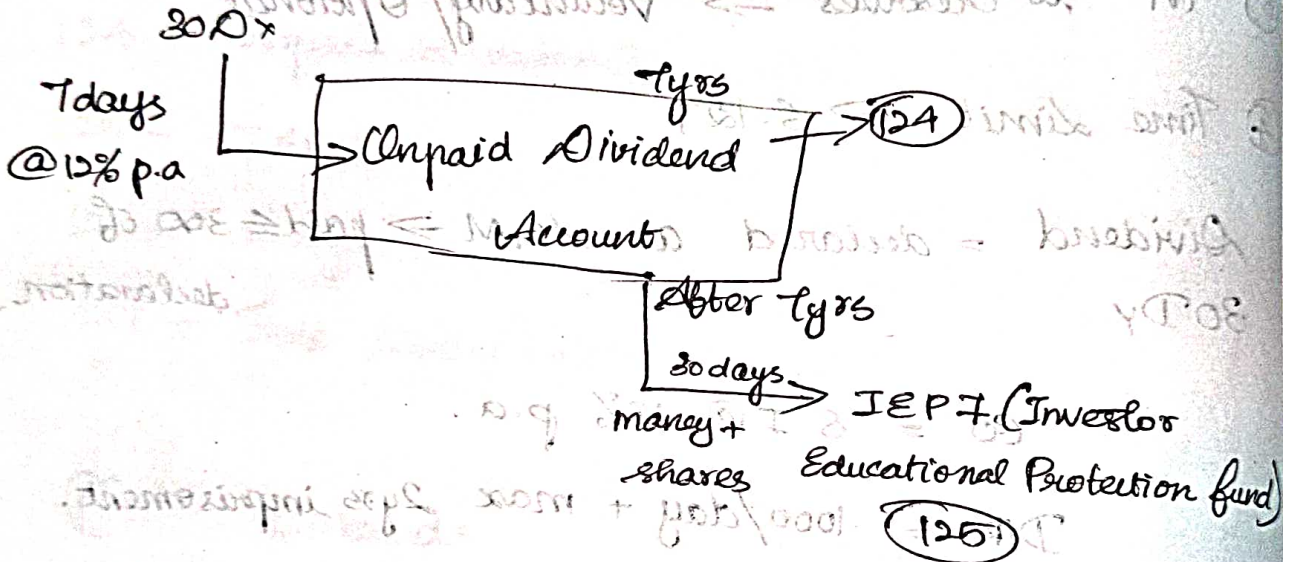 30 D x
7days
@12% p.a
7yrs
Unpaid Dividend
Account
124
After 7yrs
30 days
money +
shares
IEPF (Investor
Educational Protection fund)
125